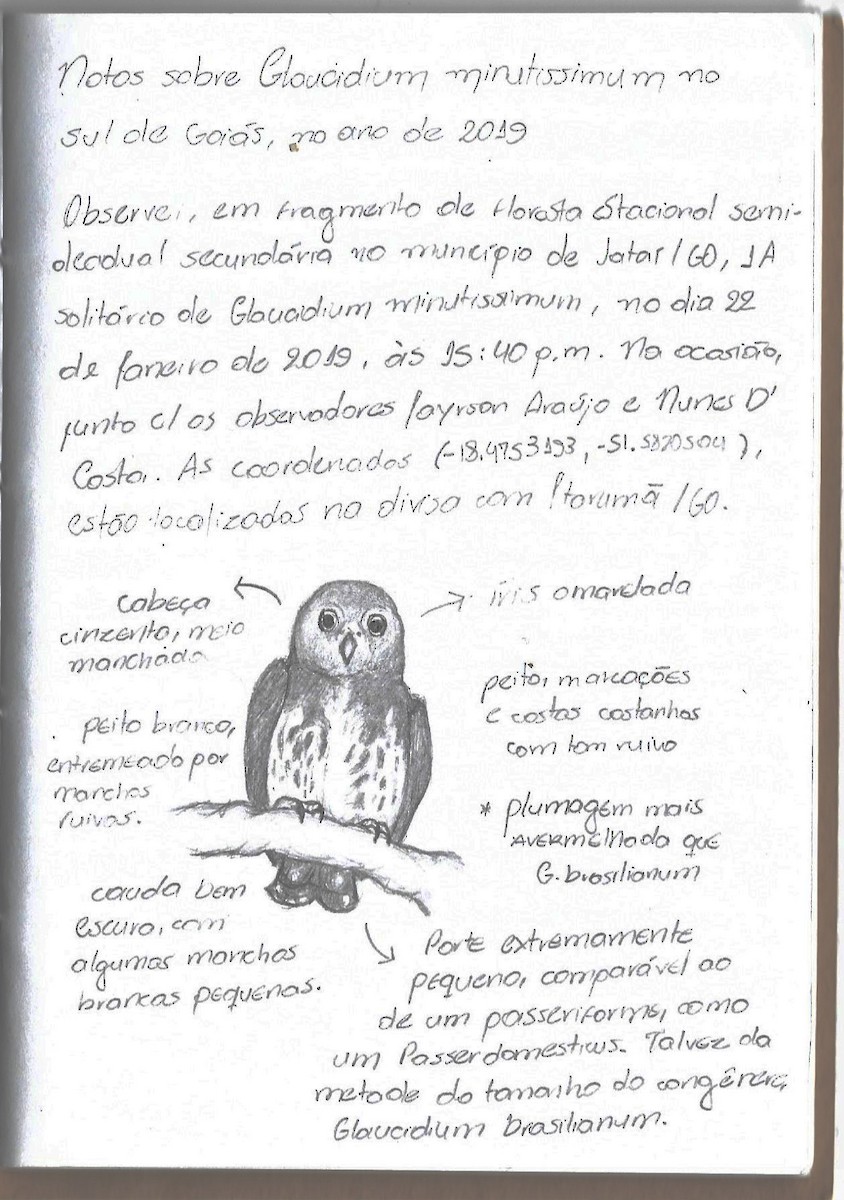 Notas sobre Glaucidium minutissimum no
sul de Goiás, no ano de 2019
Observei, em fragmento de floresta Estacional semi-
decidual secundária no município de Jataí/GO, 1A
solitário de Glaucidium minutissimum, no dia 22
de janeiro de 2019, às 15:40 p.m. Na ocasião,
junto c/ os observadores Jayrson Araújo e Nunes D'
Costa. As coordenadas (-18.4753193, -51.5820504),
estão localizadas na divisa com Itarumã/GO.
cabeça
cinzenta, meio
manchada
íris amarelada
peito, marcações
e costas castanhas
com tom ruivo
peito branco,
entremeado por
manchas
ruivas.
* plumagem mais
AVERMElhada que
G. brasilianum
cauda bem
escura, com
algumas manchas
brancas pequenas.
Porte extremamente
pequeno, comparável ao
de um passeriforme, como
um Passer domesticus. Talvez da
metade do tamanho do congênere,
Glaucidium brasilianum.